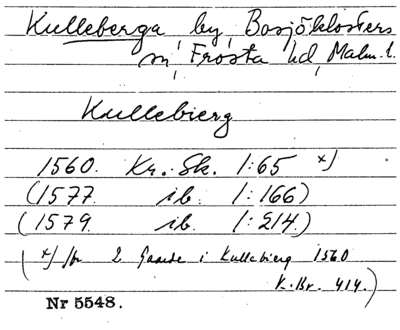 Kulleberga, by, Bosjöklosters
sn, Frosta hd, Malm. l.
Kullebierg
1560. Kr. Sk. 1:65 x)
(1577 ib. 1:166)
(1579. ib. 1:214.)
(x) för 2 Gaarde i Kullebierg 1560
K. Br. 414.)
Nr 5548.